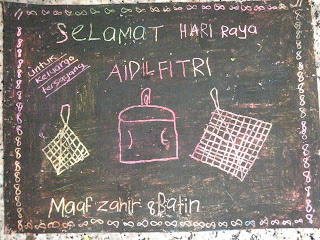 SELAMAT HARI Raya
AIDILFITRI
untuk
keluarga
tersayang
Maaf zahir & Batin